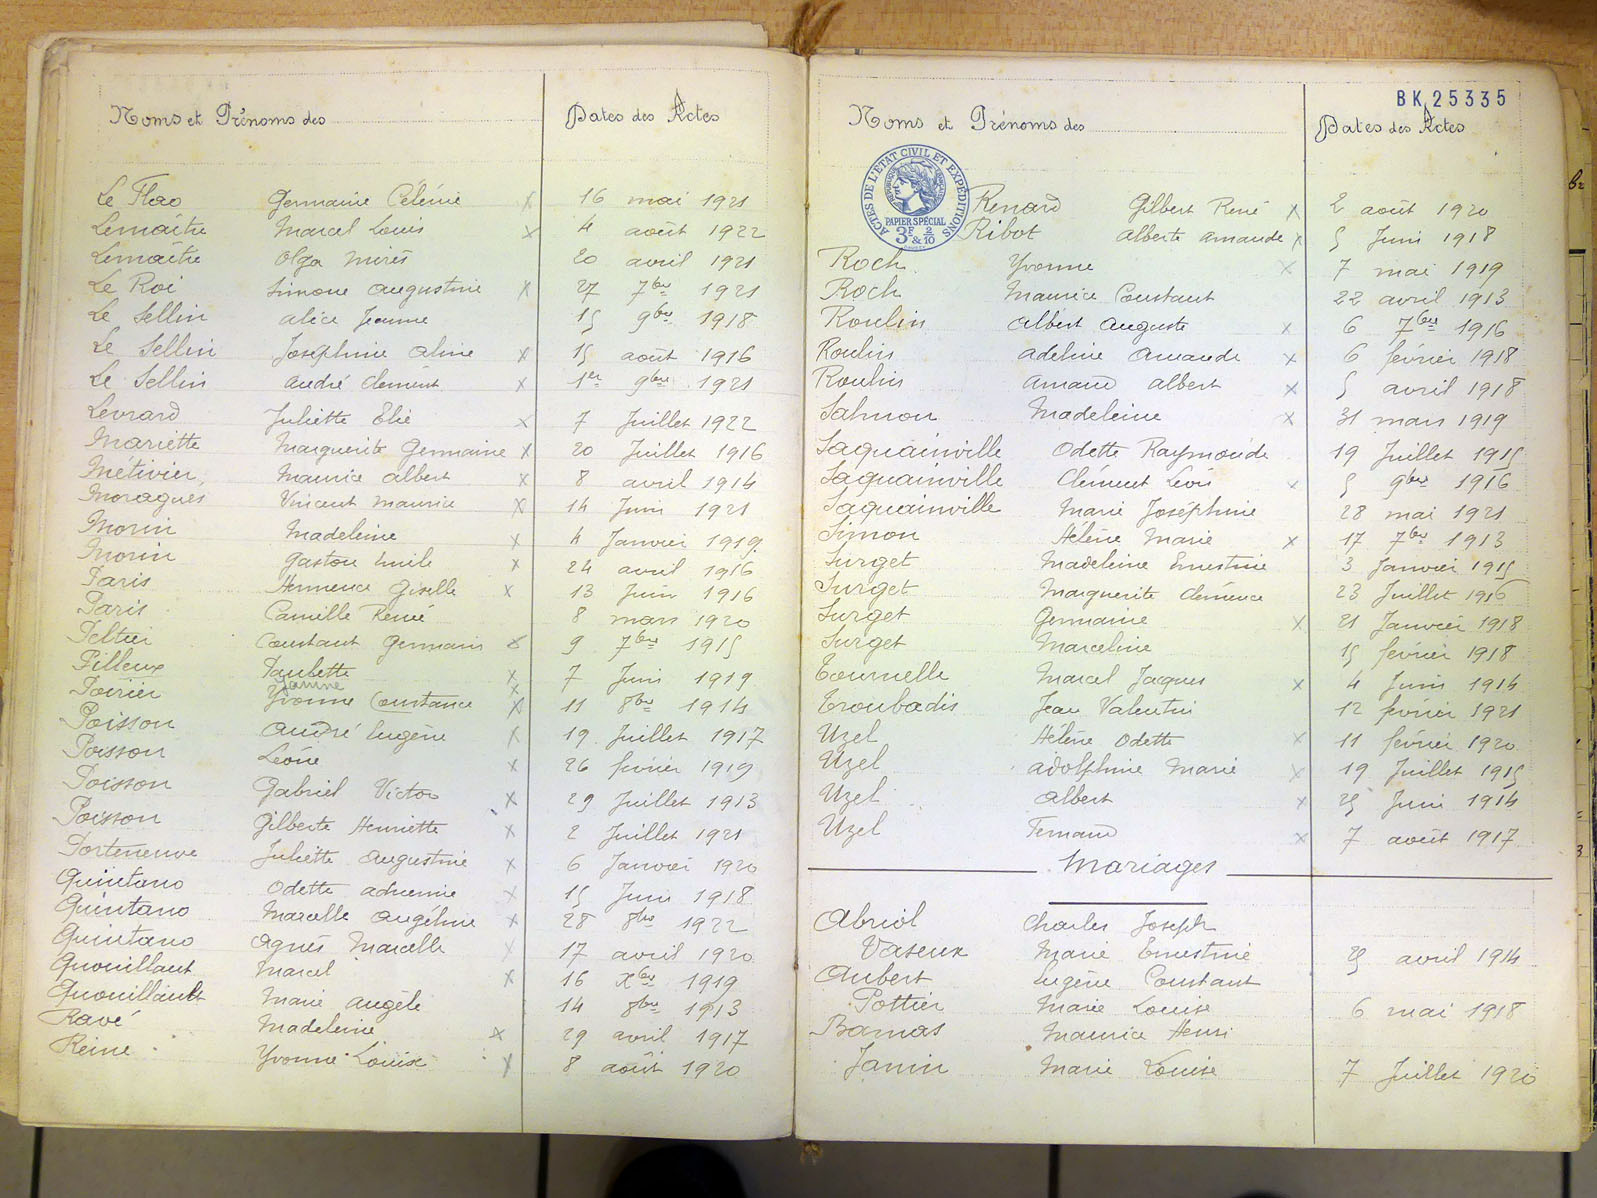 Noms et Prénoms des Dates des Actes
Le Flao Germaine Célénie x 16 mai 1921
Lemaître Marcel Louis x 4 août 1922
Lemaître Olga Mirès 20 avril 1921
Le Roi Simone Augustine x 27 7bre 1921
Le Sellin Alice Jeanne 15 9bre 1918
Le Sellin Joséphine Aline x 15 août 1916
Le Sellin André Clément x 1er 9bre 1921
Levrard Juliette Elie x 7 Juillet 1922
Mariette Marguerite Germaine x 20 Juillet 1916
Metivier Maurice Albert x 8 avril 1914
Moragues Vincent Maurice x 14 Juin 1921
Morin Madeleine x 4 Janvier 1919
Morin Gaston Emile x 24 avril 1916
Paris Hermence Giselle x 13 Juin 1916
Paris Camille René 8 mars 1920
Peltier Constant Germain x 9 7bre 1915
Pilleux Paulette x 7 Juin 1919
Janine x
Poirier Yvonne Constance x 11 8bre 1914
Poisson André Eugène x 19 Juillet 1917
Poisson Léone x 26 février 1919
Poisson Gabriel Victor x 29 Juillet 1913
Poisson Gilberte Henriette x 2 Juillet 1921
Porteneuve Juliette Augustine x 6 Janvier 1920
Quintano Odette Adrienne x 15 Juin 1918
Quintano Marcelle Angéline x 28 8bre 1922
Quintano Agnès Marcelle x 17 avril 1920
Quouillaut Marcel x 16 Xbre 1919
Quouillault Marie Angèle 14 8bre 1913
Ravé Madeleine x 29 avril 1917
Reine Yvonne Louise x 8 août 1920
BK 25335
Noms et Prénoms des Dates des Actes
ACTES DE L'ÉTAT CIVIL ET EXPÉDITIONS
RÉPUBLIQUE FRANÇAISE
PAPIER SPÉCIAL
3F & 2/10
Renard Gilbert René x 2 août 1920
Ribot Alberte Amande x 5 Juin 1918
Roch Yvonne x 7 mai 1919
Roch Maurice Constant 22 avril 1913
Roulin Albert Auguste x 6 7bre 1916
Roulin Adeline Amande x 6 février 1918
Roulin Amand Albert x 5 avril 1918
Salmon Madeleine x 31 mars 1919
Saquainville Odette Raymonde 19 Juillet 1915
Saquainville Clément Léon x 5 9bre 1916
Saquainville Marie Joséphine 28 mai 1921
Simon Hélène Marie x 17 7bre 1913
Surget Madeleine Ernestine 3 Janvier 1915
Surget Marguerite Clémence 23 Juillet 1916
Surget Germaine x 21 Janvier 1918
Surget Marceline 15 février 1918
Tournelle Marcel Jacques x 4 Juin 1914
Troubadis Jean Valentin 12 février 1921
Uzel Hélène Odette x 11 février 1920
Uzel Adolphine Marie x 19 Juillet 1915
Uzel Albert x 25 Juin 1914
Uzel Fernand x 7 août 1917
Mariages
Abriol Charles Joseph
Vaseux Marie Ernestine 25 avril 1914
Aubert Eugène Constant
Pottier Marie Louise 6 mai 1918
Bamas Maurice Henri
Janin Marie Louise 7 Juillet 1920